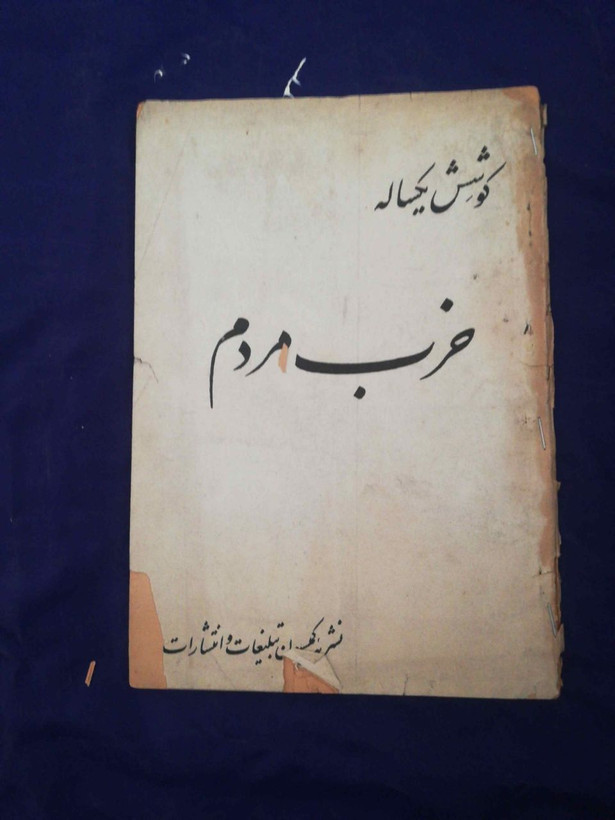 کوشش یکساله
حزب مردم
نشریه کمیسیون تبلیغات و انتشارات